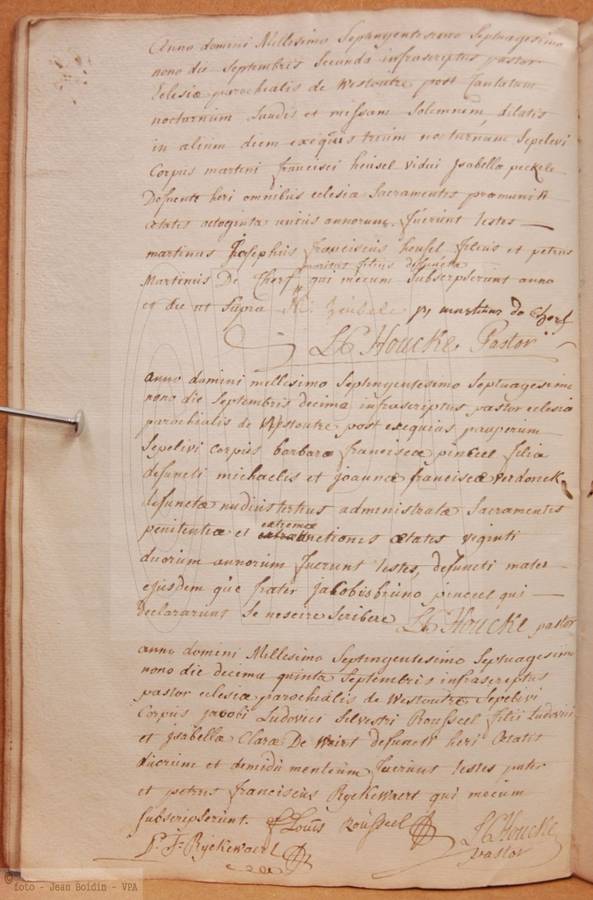 Anno domini Millesimo Septingentesimo Septuagesimo
nono die Septembris Secunda infrascriptus pastor
Eclesiæ parochialis de Westoutre post Cantatum
nocturnum Laudes et missam Solemnem, dilatis
in alium diem exequiis trium nocturnum Sepelivi
Corpus martini francisci heusel vidui Isabella peckele
Defuncti heri omnibus eclesia Sacramentis præmuniti
ætatis octoginta unius annorum. fuerunt testes
martinus Josephus franciscus heusel filius et petrus
maritus filiæ defuncta
Martinus De Cherf qui mecum Subscripserunt anno
et die ut Supra py martinus de Cherf
L C Houcke Pastor
anno domini millesimo Septingentesimo Septuagesimo
nono die Septembris decima infrascriptus pastor eclesia
parochialis de Westoutre post exequias pauperum
Sepelivi corpus barbara francisca pinceel filia
defuncti michaelis et joannæ franciscæ verdonck
defunctæ nudiustertius administratæ Sacramentis
extremæ
penitentiæ et unctionis ætatis viginti
duorum annorum fuerunt testes, defuncti mater
ejusdem que frater jacobus bruno pinceel qui
Declararunt se nescire scribere L C Houcke pastor
anno domini Millesimo Septingentesimo Septuagesimo
nono die decima quinta Septembris infrascriptus
pastor eclesia parochialis de Westoutre Sepelivi
Corpus jacobi Ludovici Silvestri Rousseel filii Ludovici
et Isabella Clara De Wairt defuncti heri Ætatis
duorum et dimidii mensium fuerunt testes pater
et petrus franciscus Ryckewaert qui mecum
subscripserunt. Louis rousseel L C Houcke
P. F. Ryckewaert pastor
© foto - Jean Boidin - VPA